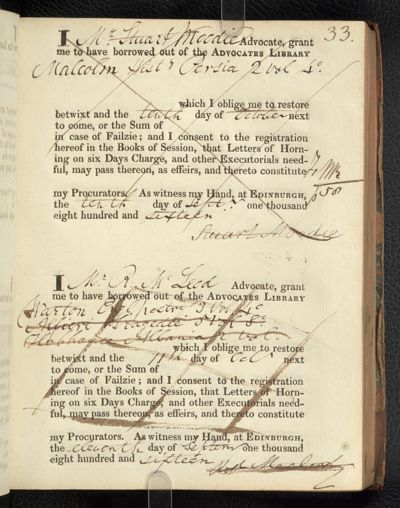 33.
I Mr Stuart Moodie Advocate, grant
me to have borrowed out of the ADVOCATES LIBRARY
Malcolm Histy Persia 2 vol 4o.
which I oblige me to restore
betwixt and the tenth day of October next
to come, or the Sum of
in case of Failzie; and I consent to the registration
hereof in the Books of Session, that Letters of Horn-
ing on six Days Charge, and other Executorials need-
ful, may pass thereon, as effeirs, and thereto constitute
my Procurators. As witness my Hand, at EDINBURGH,
the tenth day of Septr one thousand
eight hundred and sixteen
Stuart Moodie
I Mr R. McLeod Advocate, grant
me to have borrowed out of the ADVOCATES LIBRARY
Warton 3 vol 4o
3 vol 8o
vol.
which I oblige me to restore
betwixt and the 11th day of Octr next
to come, or the Sum of
in case of Failzie; and I consent to the registration
hereof in the Books of Session, that Letters of Horn-
ing on six Days Charge, and other Executorials need-
ful, may pass thereon, as effeirs, and thereto constitute
my Procurators. As witness my Hand, at EDINBURGH,
the eleventh day of Septem one thousand
eight hundred and sixteen
Macleod